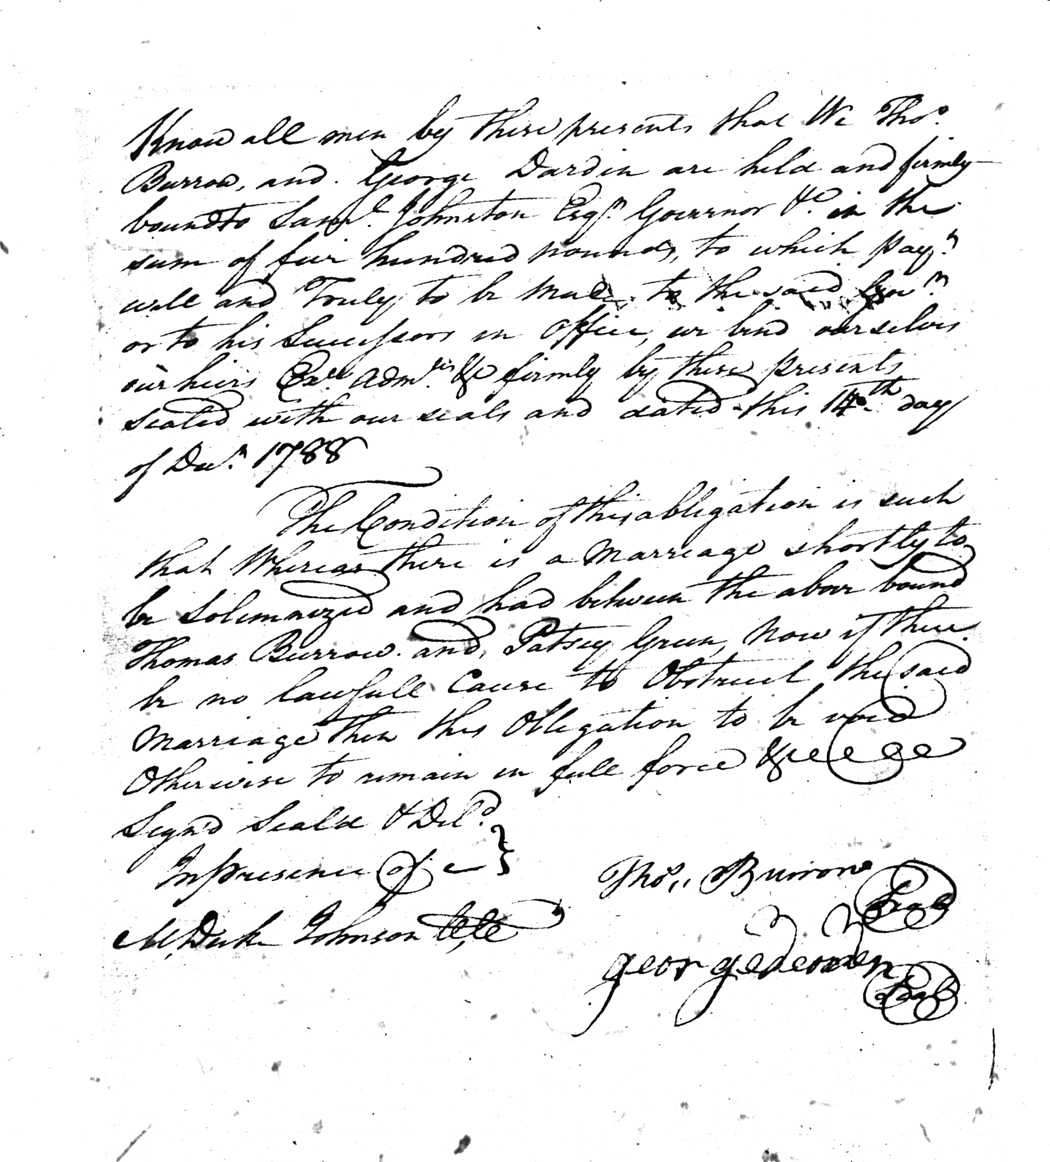 Know all men by these presents that We Thos.
Burrow, and George Dardin are held and firmly
bound to Saml. Johnston Esqr. Governor &c. in the
sum of five hundred pounds, to which paymt.
well and Truly to be Made to the said Govr.
or to his Successors in Office, we bind ourselves
our heirs Exrs. admrs. &c firmly by these presents
sealed with our seals and dated this 14th. day
of Decr. 1788
The Condition of this abligation is such
that Whereas there is a Marriage shortly to
be Solemnized and had between the above bound
Thomas Burrow and, Patsey Green, Now if there
be no lawfull Cause to Obstruct the said
Marriage Then this Obligation to be void
Otherwise to remain in full force &c
Sign'd Seald & Deld.
In presence of
M, Duke Johnson
Thos., Burrow Seal
george derden Seal